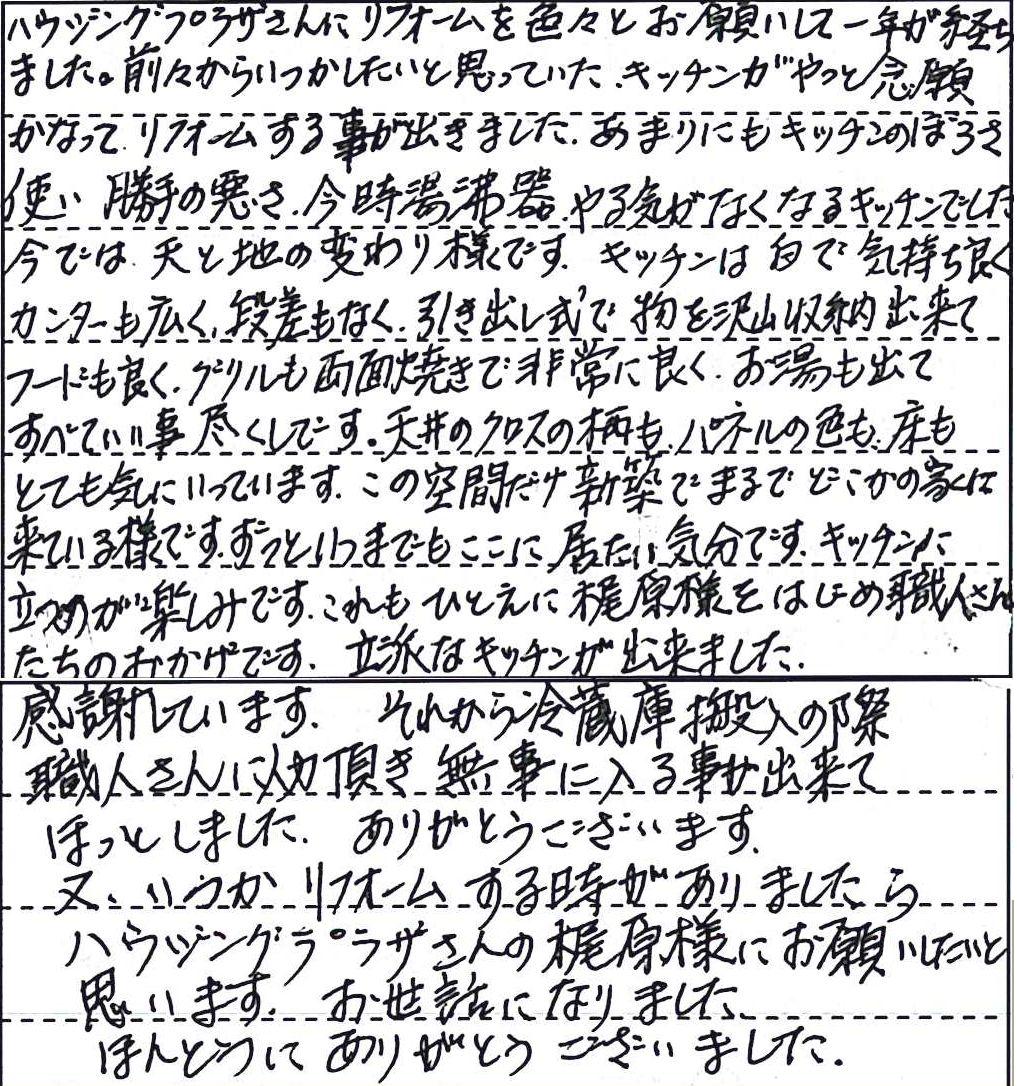 ハウジングプラザさんにリフォームを色々とお願いして一年が経ち
ました。前々からいつかしたいと思っていた、キッチンがやっと念願
かなって、リフォームする事が出きました。あまりにもキッチンのぼろさ
使い勝手の悪さ、今時湯沸器、やる気がなくなるキッチンでした
今では、天と地の変わり様です。キッチンは白で気持ち良く
カンターも広く、段差もなく、引き出し式で物を沢山収納出来て
フードも良く、グリルも両面焼きで非常に良く、お湯も出て
すべていい事尽くしです。天井のクロスの柄も、パネルの色も、床も
とても気にいっています。この空間だけ新築でまるでどこかの家に
来ている様です。ずっといつまでもここに居たい気分です。キッチンに
立つのが楽しみです。これもひとえに梶原様をはじめ職人さん
たちのおかげです。立派なキッチンが出来ました。
感謝しています。それから冷蔵庫搬入の際
職人さんに効頂き無事に入る事が出来て
ほっとしました。ありがとうございます。
又、いつかリフォームする時がありましたら
ハウジングプラザさんの梶原様にお願いしたいと
思います。お世話になりました
ほんとうにありがとうございました。